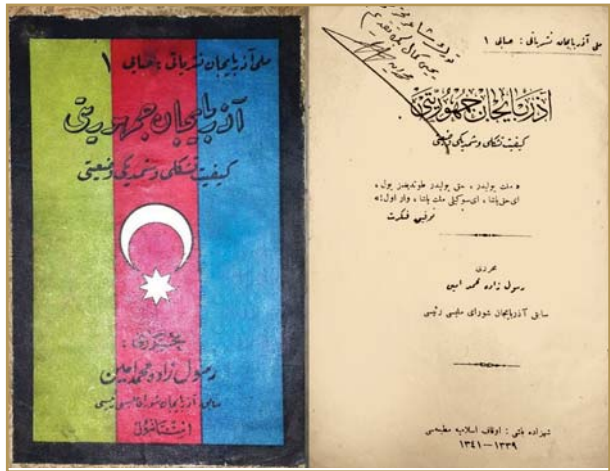 ملی آذربایجان نشریاتی : صایی ۱
آذربایجان جمهوریتی
کیفیت تشکلی و شمدیکی وضعیتی
محرری :
رسول زاده محمد امین
سابق آذربایجان شورای ملیسی رئیسی
استانبول
ملی آذربایجان نشریاتی : صایی ۱
آذربایجان جمهوریتی
کیفیت تشکلی و شمدیکی وضعیتی
« ملت یولیدر ، حق یولیدر طوتدیغمز یول ،
ای حق یاشا ، ای سوکیلی ملت یاشا ، وار اول ! »
توفیق فکرت
محرری
رسول زاده محمد امین
سابق آذربایجان شورای ملیسی رئیسی
شهزاده باشی : اوقاف اسلامیه مطبعه‌سی
۱۳۳۹—۱۳۴۱